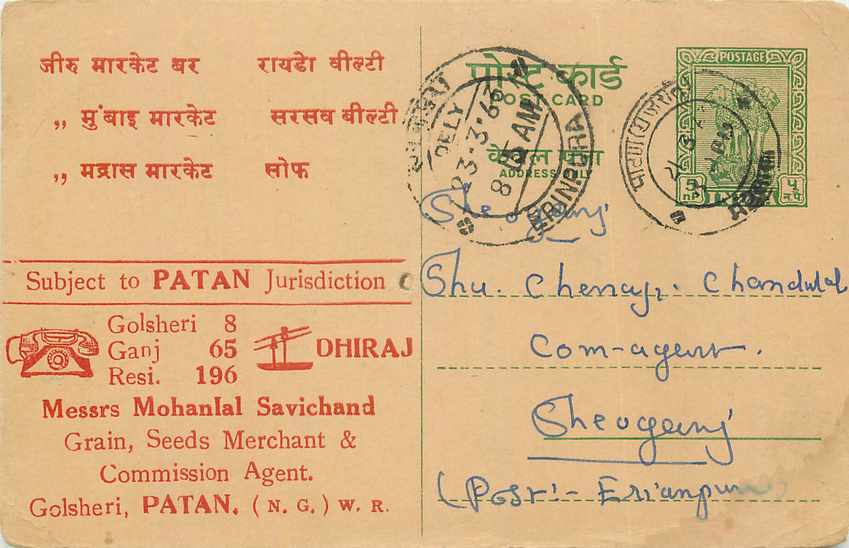 जीरु मारकेट बर रायडेा बील्टी
,, मुंबाइ मारकेट सरसव बील्टी
,, मद्रास मारकेट सोफ
Subject to PATAN Jurisdiction
Golsheri 8
Ganj 65
Resi. 196
DHIRAJ
Messrs Mohanlal Savichand
Grain, Seeds Merchant &
Commission Agent.
Golsheri, PATAN. ( N. G. ) W. R.
पोस्ट कार्ड
POST CARD
केवल पता
ADDRESS ONLY
POSTAGE
DELY
23-3-63
8 AM
ERINPURA
Sheoganj
Shu. Chenaji. Chandulal
Com-agent.
Sheoganj
(Post:- Erianpura